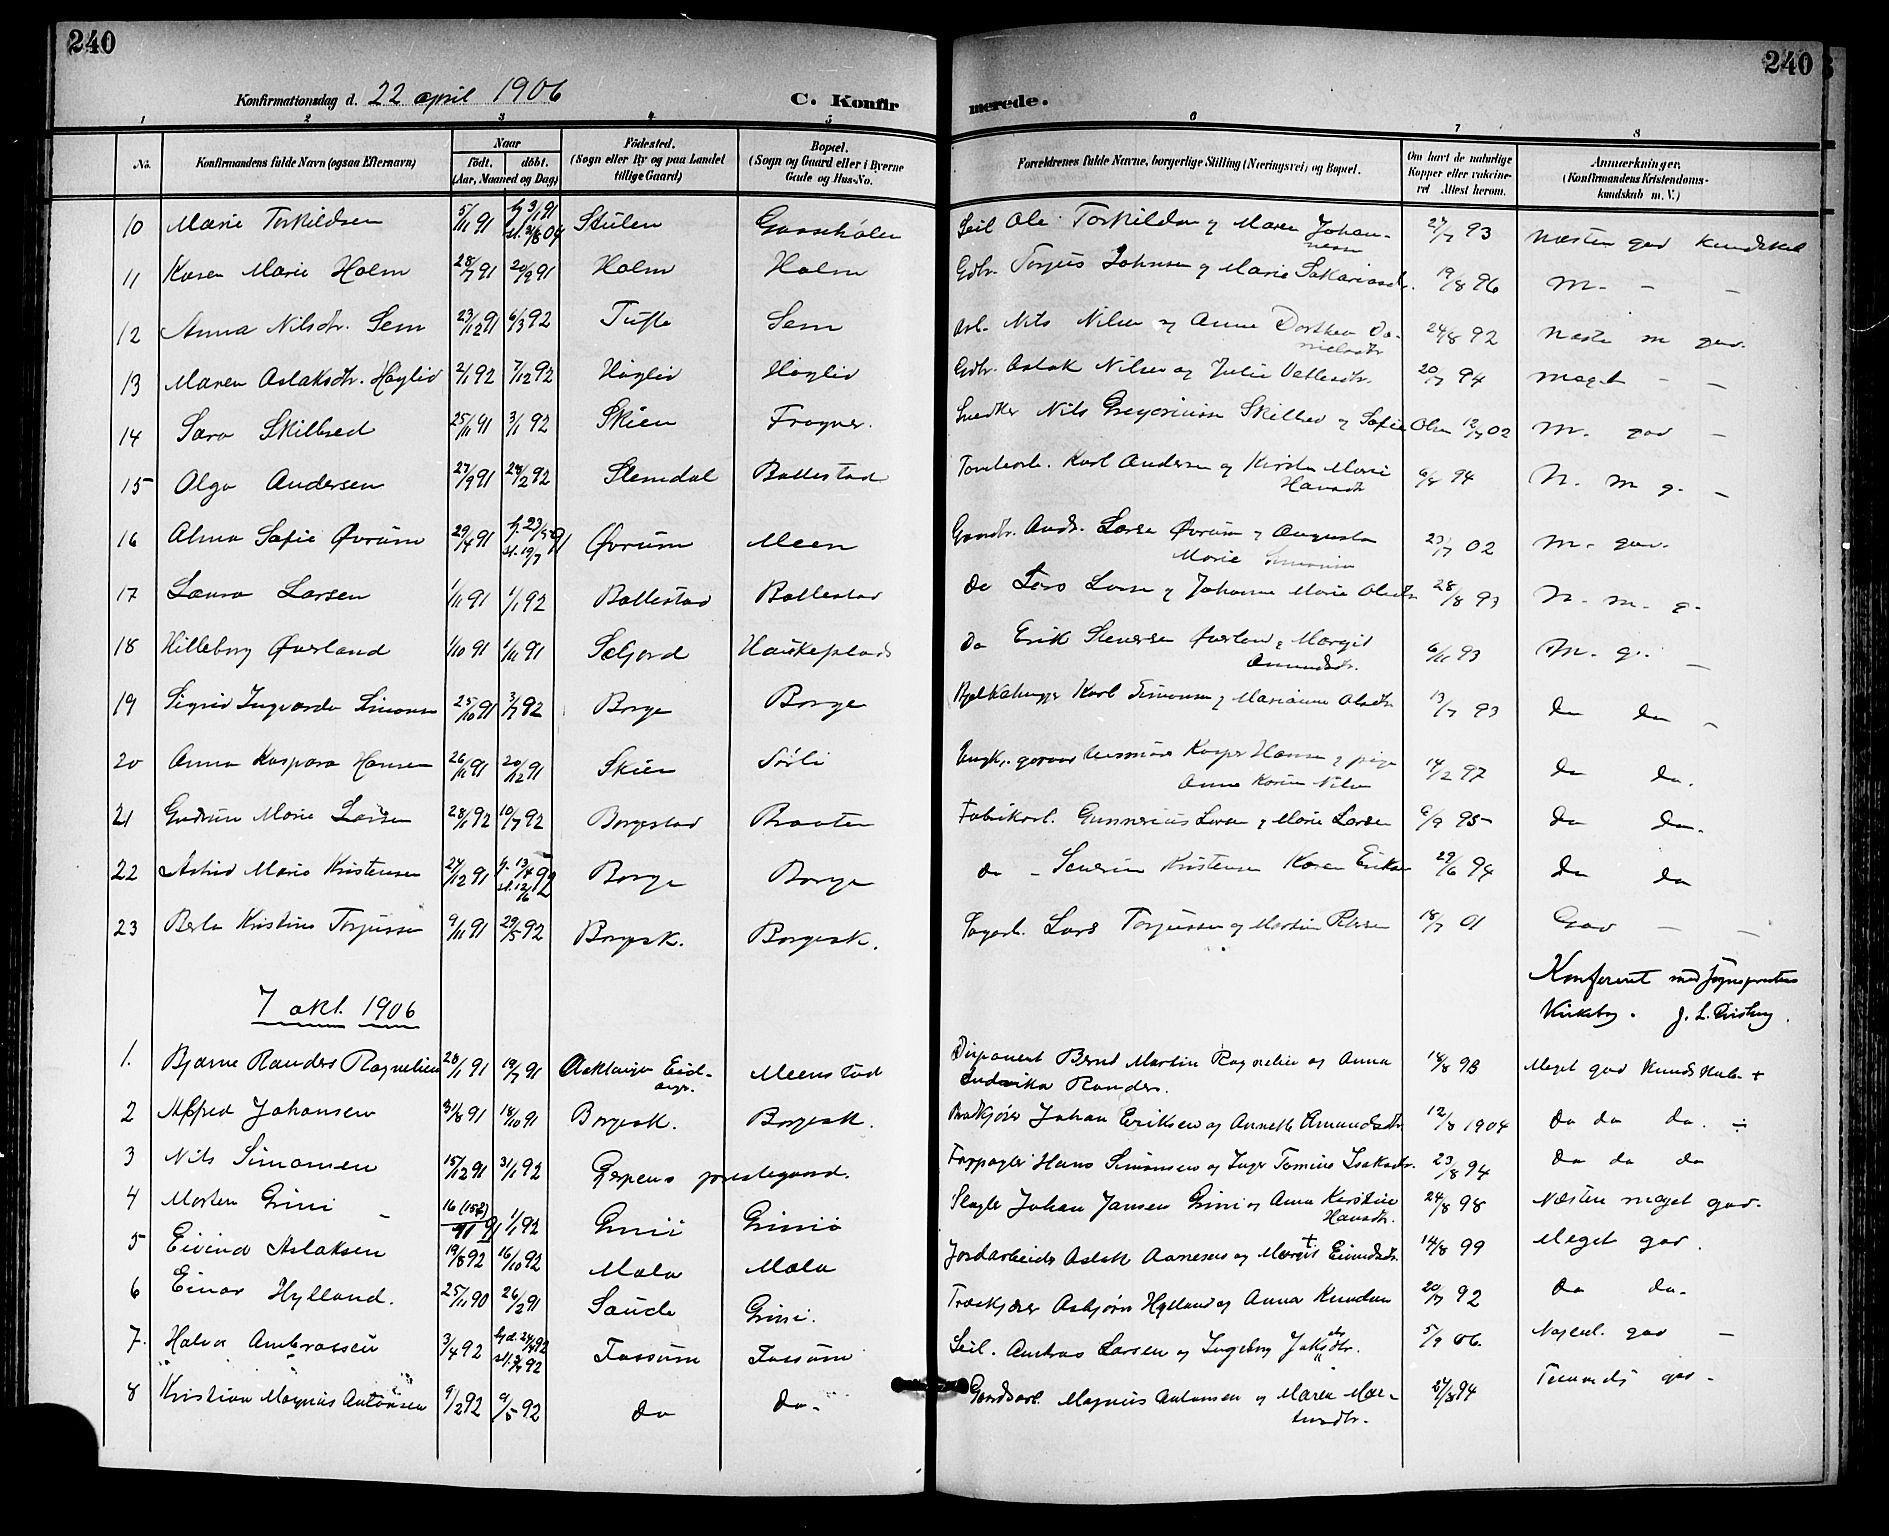 240
240
Konfirmationsdag d. 22 april 1906
C. Konfir
merede.
1 2 3 4 5 6 7 8
No. Konfirmandens fulde Navn (ogsaa Efternavn) Naar født. døbt. (Aar, Maaned og Dag) Fødested. (Sogn eller By og paa Landet tillige Gaard) Bopæl. (Sogn og Gaard eller i Byerne Gade og Hus-No. Forældrenes fulde Navne, borgerlige Stilling (Næringsvei) og Bopæl. Om havt de naturlige Kopper eller vaccineret Attest herom. Anmærkninger. (Konfirmandens Kristendomskundskab m. V.)
10 Marie Torkildsen 5/11 91 hj 3/1 91 Skulen Ole Torkildsen og Maren Johannesen 27/7 93 Næsten god Kundskab
11 Karen Marie Holm 28/7 91 20/9 91 Holm Holm Gdbr. Torjus Johnsen og Marie Sakariasd. 19/8 96 M. - -
12 Anna Nilsdtr. Sem 23/12 91 6/3 92 Tufte Sem Arb. Nils Nilsen og Anne Dorthea Danielsdtr 24/8 92 Næste m god.
13 Maren Aslaksdtr. Høglid 2/1 92 7/12 92 Høglid Høglid Gdbr. Aslak Nilsen og Julie Vetlesdtr. 20/7 94 meget - -
14 Sara Skilbred 25/11 91 3/1 92 Skien Frogner. Snedker Nils Gregorius Skilbred og Sofie Olsen 12/7 02 M. god -
15 Olga Andersen 27/9 91 24/2 92 Slemdal Ballestad Karl Andersen og Kirsten Marie Hansdtr 6/8 94 N. m g. -
16 Alma Sofie Øvrum 29/4 91 Øvrum Meen Ands. Larsen Øvrum og Augusta Marie 23/7 02 M. god.
17 Laura Larsen 1/11 91 1/1 92 Ballestad Ballestad do Lars Larsen og Johanne Marie Olsdtr 28/8 93 N. m. g.
18 Hilleborg Øverland 1/10 91 1/11 91 Seljord Haukeplads do Erik Stenersen Øverland og Margit Amundsdtr. 6/11 93 M. g. -
19 Sigrid Ingvarda Simonsen 25/10 91 3/7 92 Borge Borge Karl Simonsen og Marianne Olsdtr 13/7 93 do do -
20 Anna Kaspara Hansen 26/11 91 20/12 91 Skien Sørli Kasper Hansen og pige Anne Karine Nilsen 14/2 97 do do.
21 Gudrun Marie Larsen 28/1 92 10/7 92 Borgestad Braaten Fabrikarb. Gunnerius Larsen og Marie Larsen 6/9 95 do do.
22 Astrid Marie Kristensen 27/12 91 Borge Borge do - Severin Kristensen Karen Eriksen 29/6 94 do do
23 Berta Kristine Torjussen 9/11 91 29/5 92 Borgesk. Borgesk. Sagarb. Lars Torjussen og Martine Petersen 18/7 01 God - -
Konfereret med sognepresten
Kirkebog. J. L.
7 okt. 1906
1. Bjarne Randers Ragnelien 28/1 91 19/7 91 Eidanger Meenstad Disponent Bernt Martin Ragnelien og Anna Ludvika Randers. 14/8 93 Meget god Kundskab +
2 Alfred Johansen 31/8 91 18/10 91 Borgesk. Borgesk. Johan Eriksen og Annette Amundsdtr. 12/8 1904 do do do. ÷
3 Nils Simonsen 15/12 91 31/1 92 Gjerpens prestegaard. Forpagter Hans Simonsen og Inger Tomine Isaksdtr. 23/8 94 do do do
4 Morten Grini 16 (15?)/11 91 1/1 92 Grini Grini Slagter Johan Jansen Grini og Anna Kirstine Hansdtr. 24/8 98 Næsten meget god.
5 Eivind Aslaksen 19/8 92 16/10 92 Mæla Mæla Jordarbeider Aslak Aanesen og Margit + Eivindsdtr. 14/8 99 Meget god.
6 Einar Hylland. 25/11 90 26/2 91 Saude Grini. Asbjørn Hylland og Anna Knudsen 20/7 92 do do.
7. Halvor Ambrosen 3/4 92 Fossum Fossum Seil. Ambros Larsen og Ingeborg Jakobsdtr. 5/9 06. god -
8 Kristian Magnus Antonsen 9/2 92 9/5 92 do do. Gaardsarb. Magnus Antonsen og Maren Martinsdtr. 27/8 94 Temmelig god -